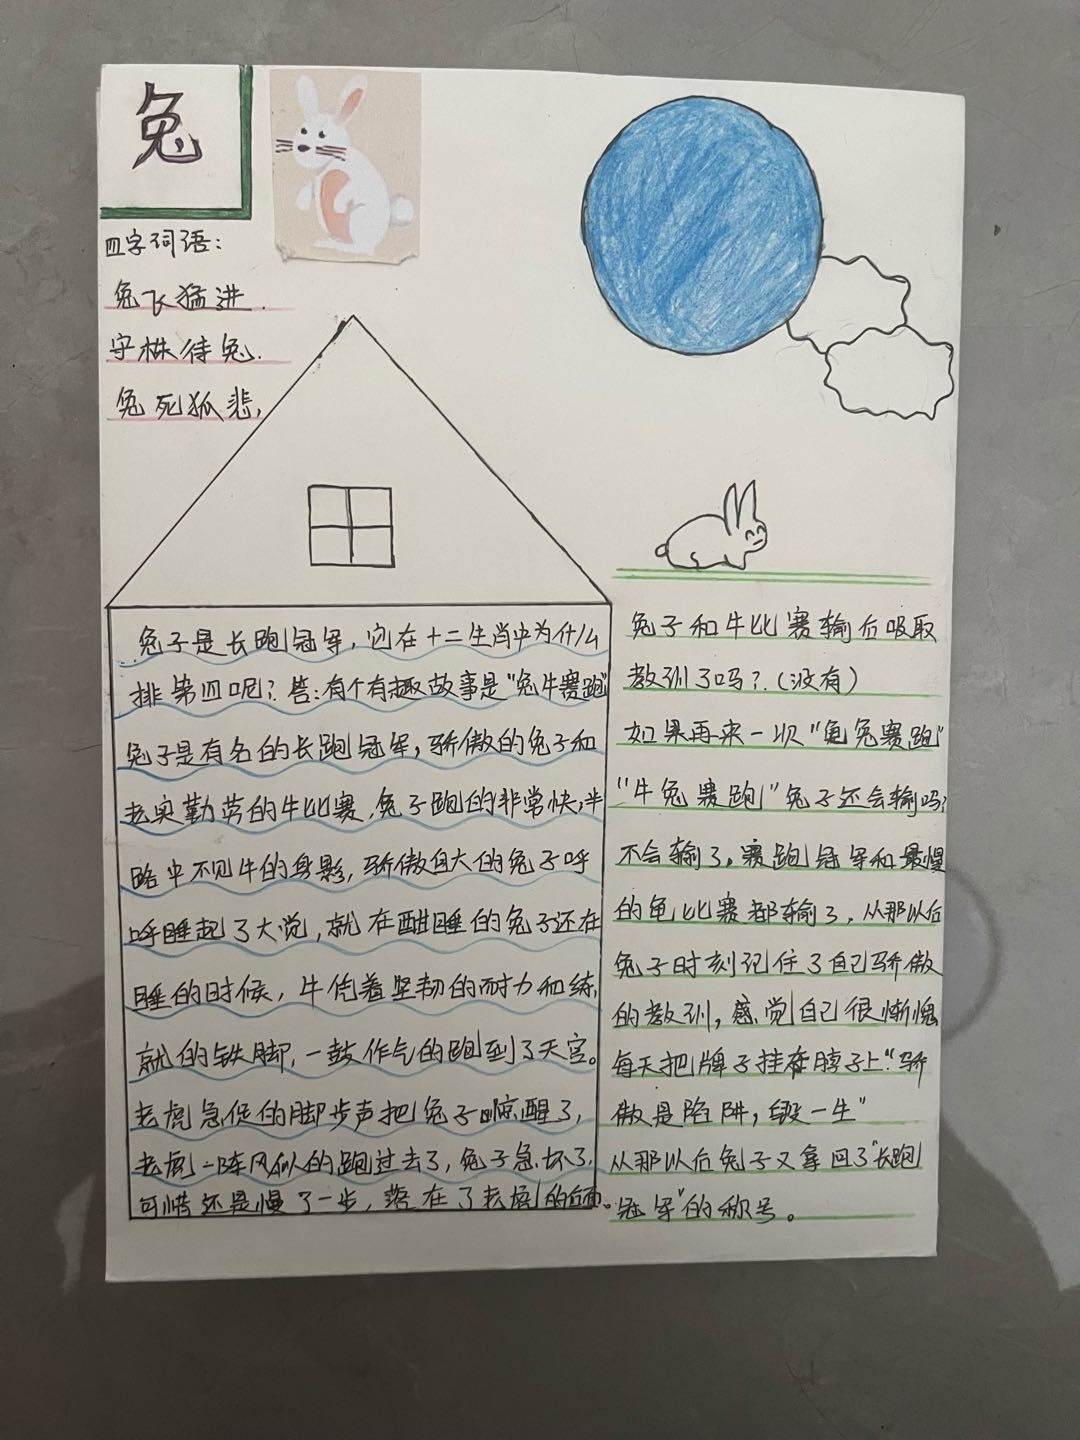 兔
四字词语：
兔飞猛进.
守株待兔.
兔死狐悲,
兔子是长跑冠军，它在十二生肖中为什么
排第四呢？答：有个有趣故事是“兔牛赛跑”
兔子是有名的长跑冠军，骄傲的兔子和
老实勤劳的牛比赛,兔子跑的非常快,半
路中不见牛的身影，骄傲自大的兔子呼
呼睡起了大觉，就在酣睡的兔子还在
睡的时候，牛凭着坚韧的耐力和练
就的铁脚，一鼓作气的跑到了天宫。
老虎急促的脚步声把兔子惊醒了，
老虎一阵风似的跑过去了，兔子急坏了,
可惜还是慢了一步，落在了老虎的后面。
兔子和牛比赛输后吸取
教训了吗？（没有）
如果再来一次“龟兔赛跑”
“牛兔赛跑”兔子还会输吗？
不会输了。赛跑冠军和最慢
的龟比赛都输了，从那以后
兔子时刻记住了自己骄傲
的教训，感觉自己很惭愧
每天把牌子挂在脖子上“骄
傲是陷阱，毁一生”
从那以后兔子又拿回了“长跑
冠军”的称号。